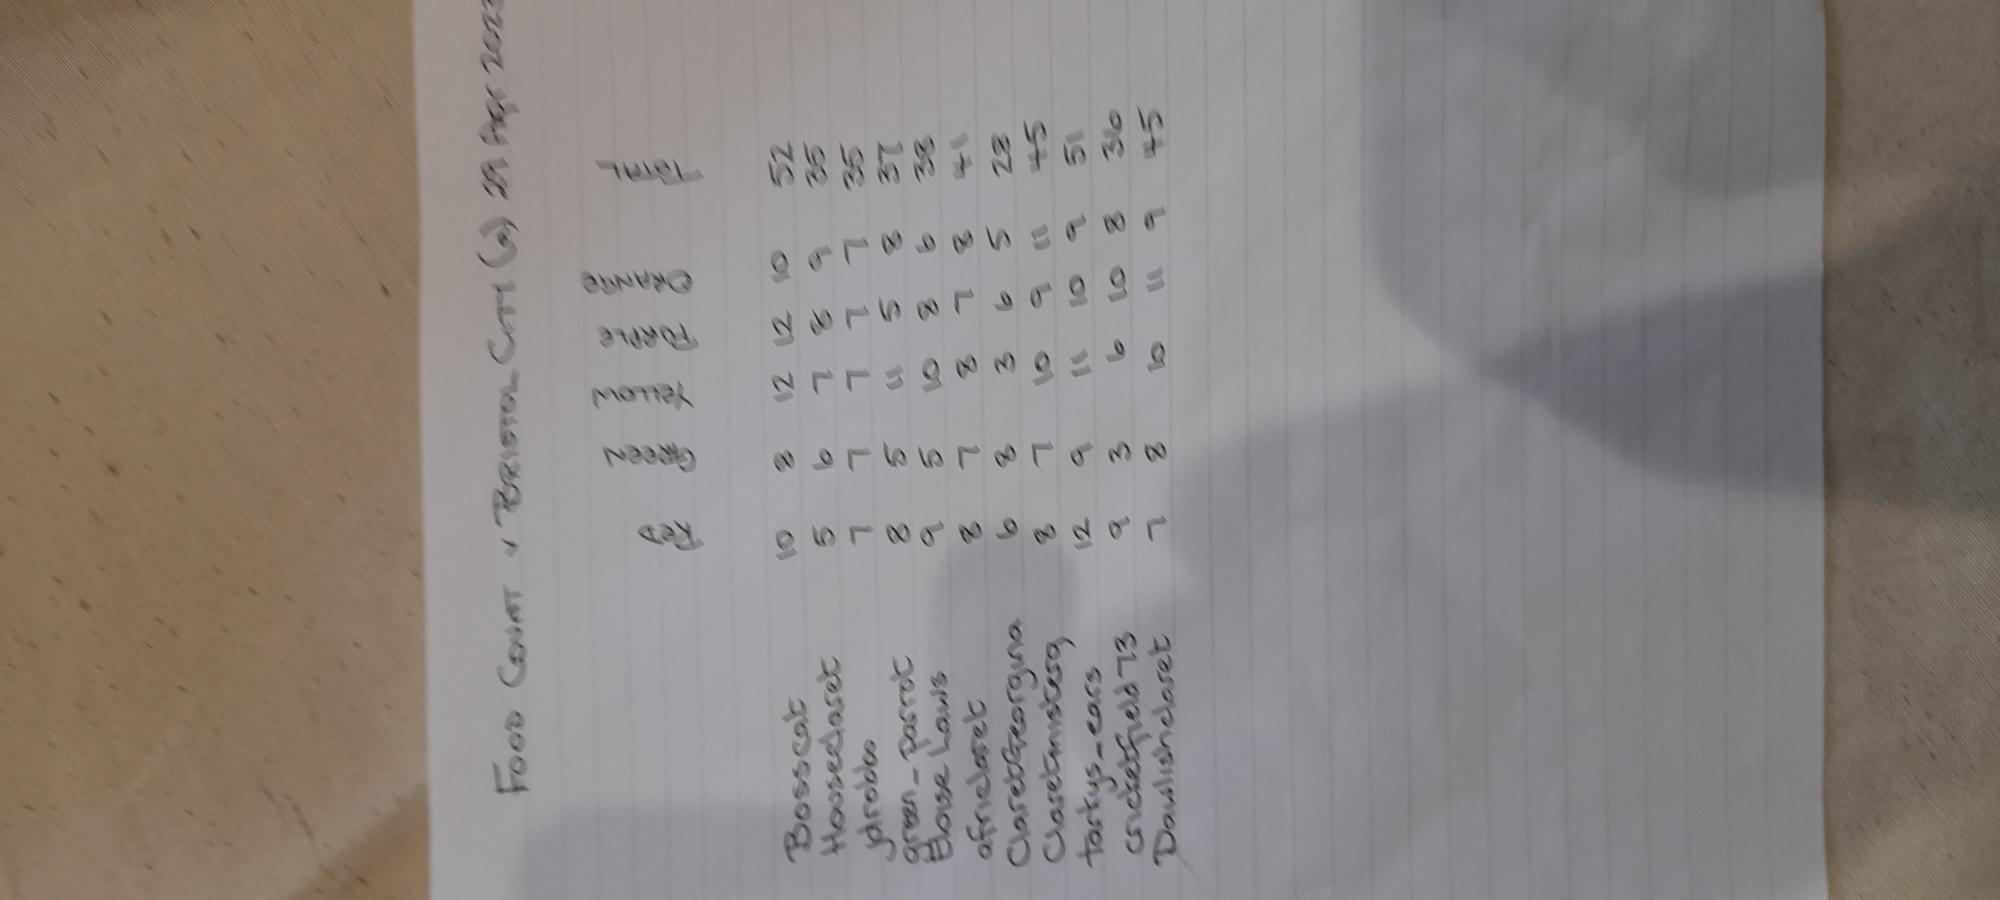 FOOD COUNT v BRISTOL CITY (a) 29 Apr 202
RED GREEN YELLOW PURPLE ORANGE TOTAL
Bosscat 10 8 12 12 10 52
Houseclaret 5 6 7 8 9 35
jdrobbo 7 7 7 7 7 35
green-parrot 8 5 11 5 8 37
Eloise Laws 9 5 10 8 6 38
africlaret 8 7 8 7 8 41
ClaretGeorgina 6 8 3 6 5 28
Claretmisterg 8 7 10 9 11 45
tarkys-ears 12 9 11 10 9 51
Cricketfield73 9 3 6 10 8 36
Dawlishclaret 7 8 10 11 9 45